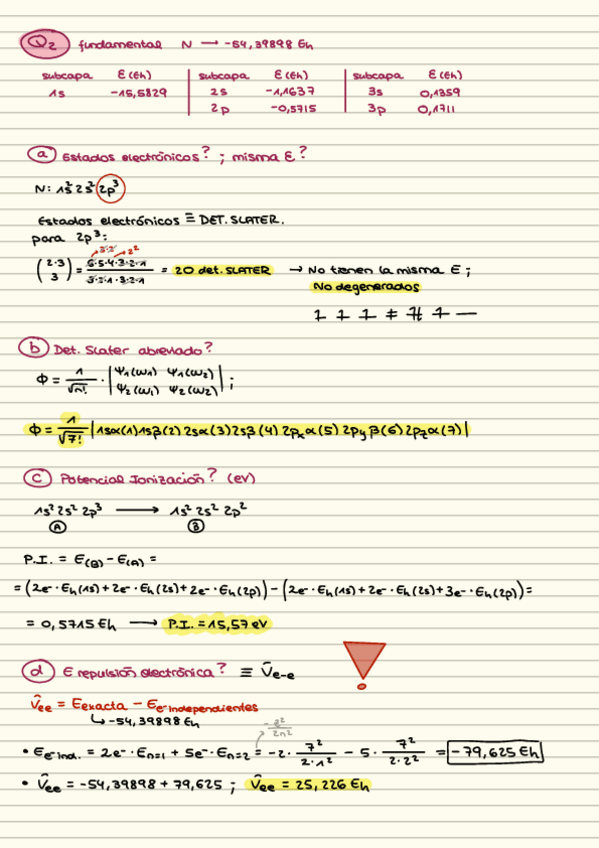 Q2 fundamental N → -54,39898 Eh
subcapa E (Eh) subcapa E (Eh) subcapa E (Eh)
1s -15,5829 2s -1,1637 3s 0,1359
2p -0,5715 3p 0,1711
a Estados electrónicos? ; misma E?
N: 1s² 2s² 2p³
Estados electrónicos ≡ DET. SLATER.
para 2p³:
3·2 2²
(2·3 3) = 6·5·4·3·2·1 / 3·2·1·3·2·1 = 20 det. SLATER → No tienen la misma E ;
No degenerados
1 1 1 ≠ 1↓ 1 —
b Det. Slater abreviado?
Φ = 1/√n! · | Ψ1(ω1) Ψ1(ω2) |
| Ψ2(ω1) Ψ2(ω2) | ;
Φ = 1/√7! |1sα(1)1sβ(2)2sα(3)2sβ(4)2pxα(5)2pyβ(6)2pzα(7)|
c Potencial Ionización? (eV)
1s² 2s² 2p³ → 1s² 2s² 2p²
A B
P.I. = E(B) - E(A) =
= (2e⁻·Eh(1s)+2e⁻·Eh(2s)+2e⁻·Eh(2p)) - (2e⁻·Eh(1s)+2e⁻·Eh(2s)+3e⁻·Eh(2p)) =
= 0,5715 Eh → P.I. = 15,57 eV
d E repulsión electrónica? ≡ V̂e-e
V̂ee = Eexacta - Ee⁻independientes
↳ -54,39898 Eh
-z²/2n²
• Ee⁻ind. = 2e⁻·En=1 + 5e⁻·En=2 = -2·7²/2·1² - 5·7²/2·2² = -79,625 Eh
• V̂ee = -54,39898 + 79,625 ; V̂ee = 25,226 Eh